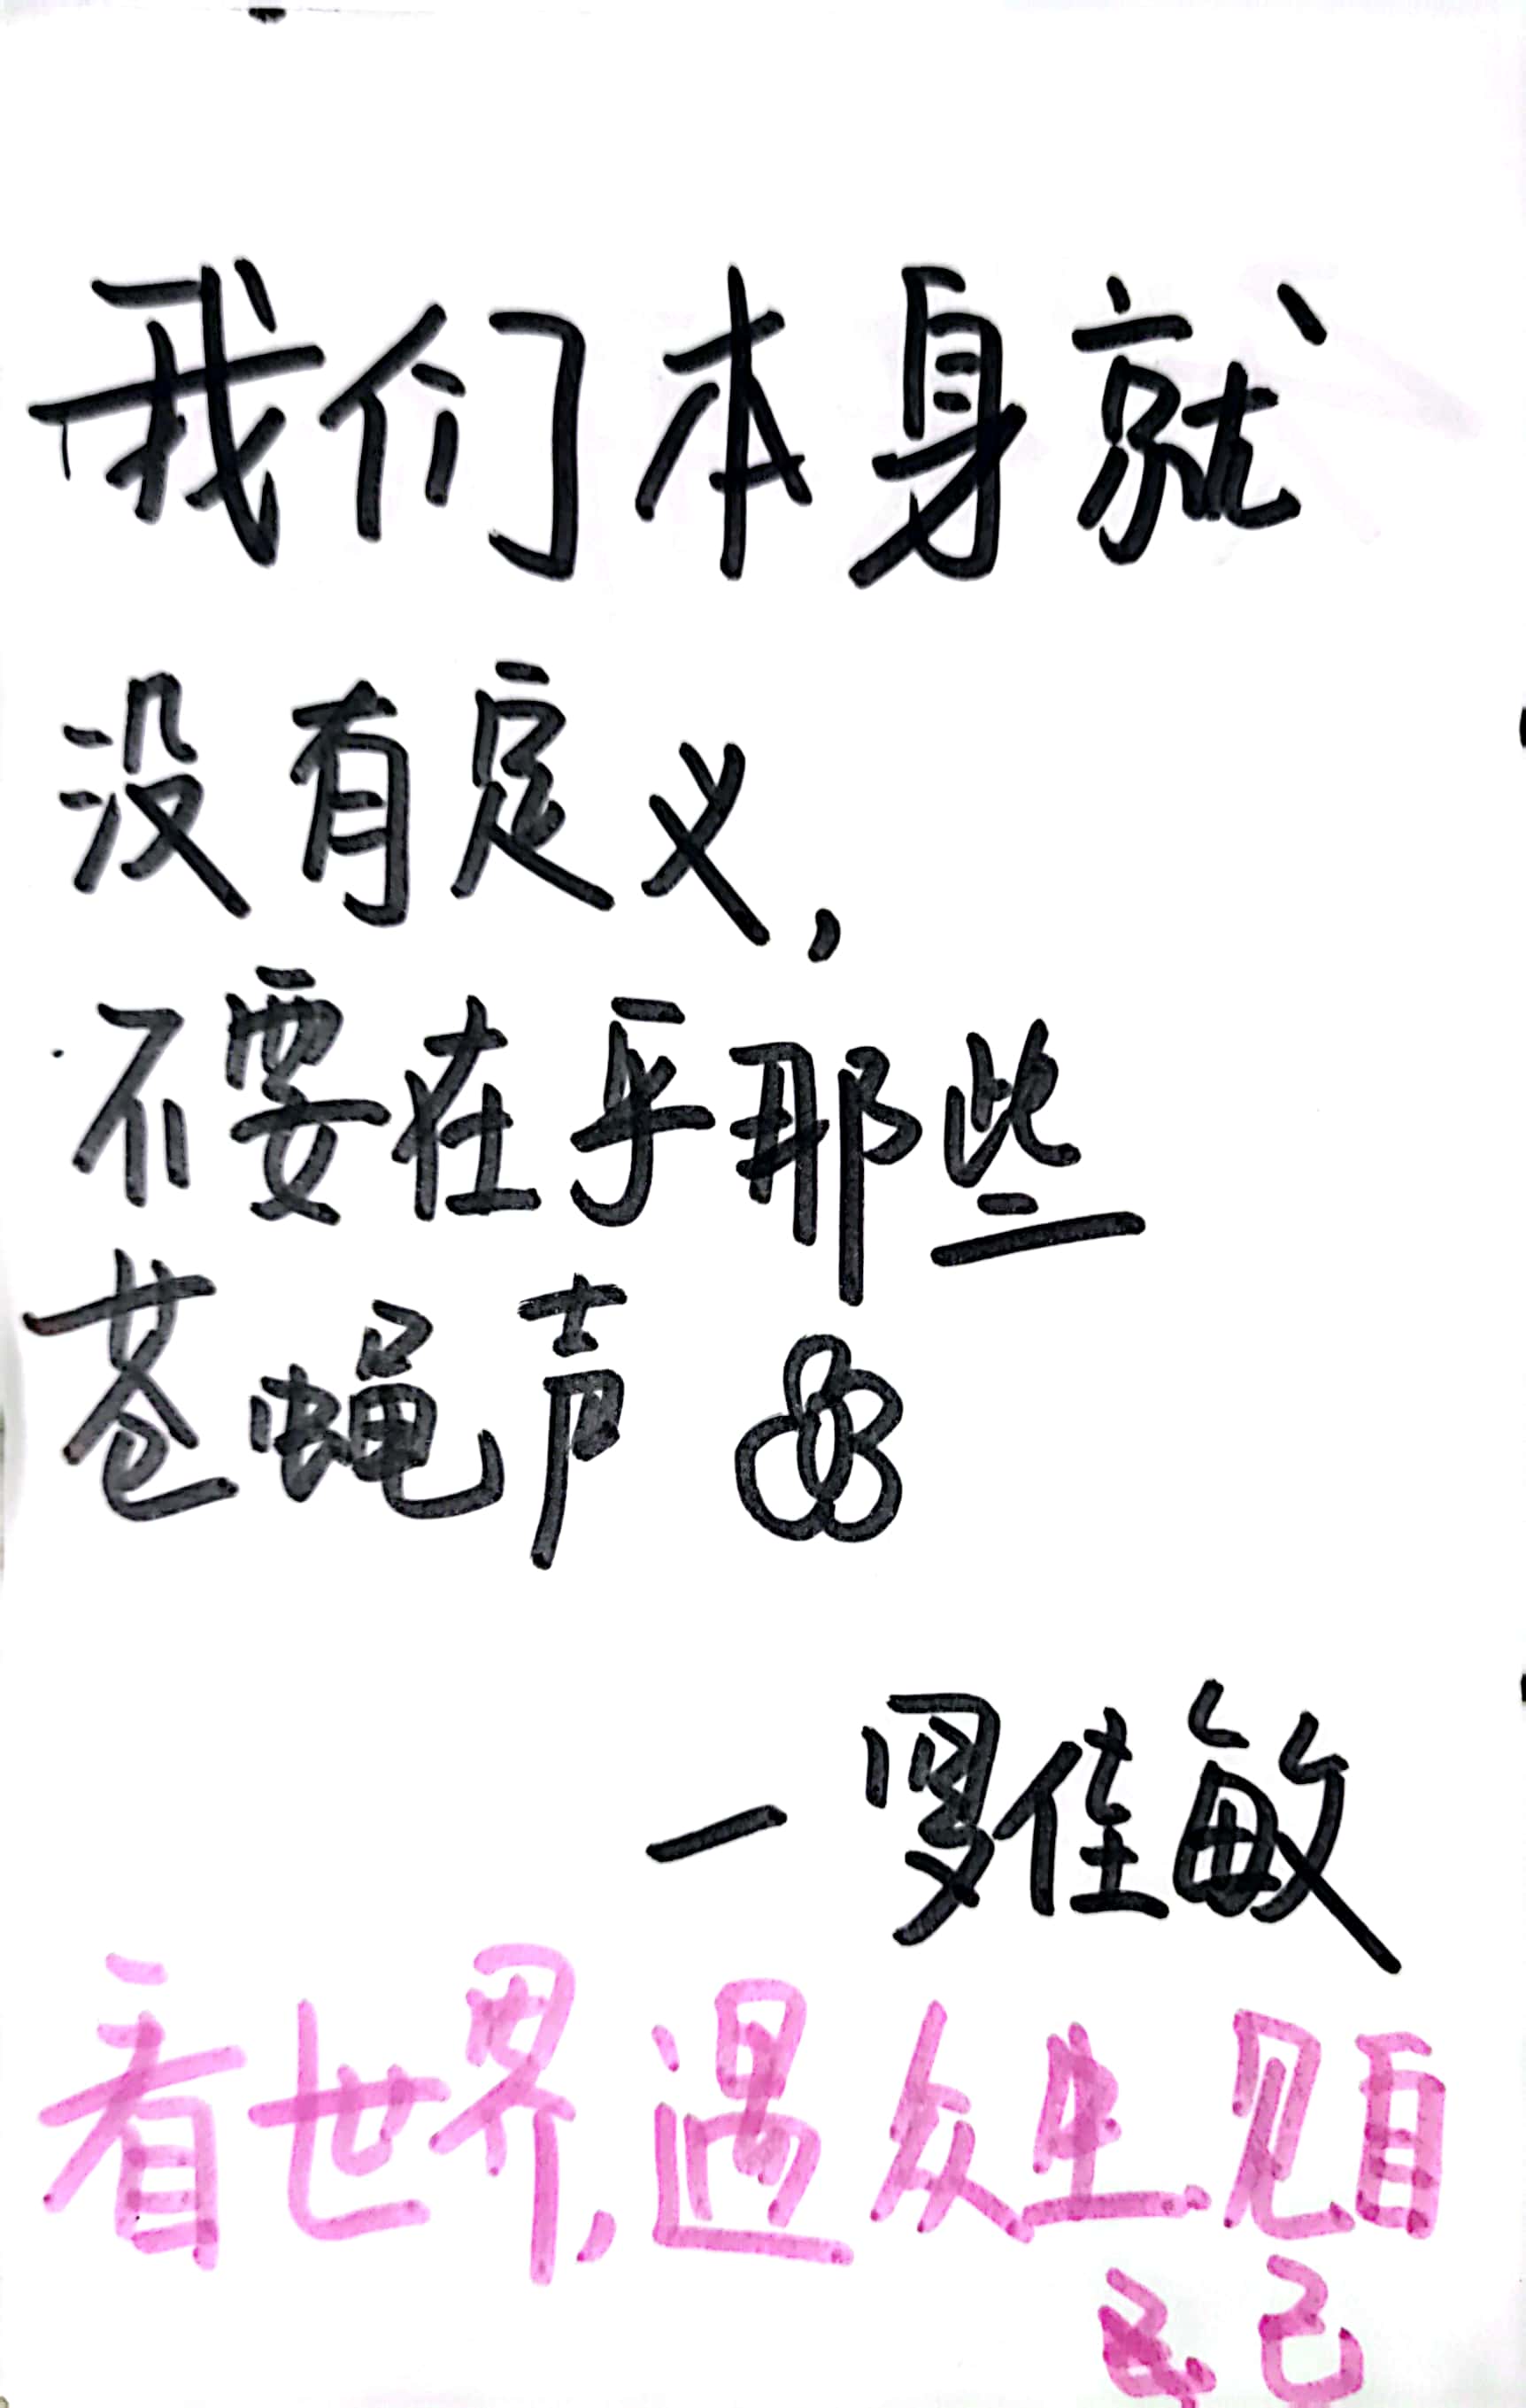 我们本身就
没有定义,
不要在乎那些
苍蝇声
—罗佳敏
看世界,遇众生.见自
己